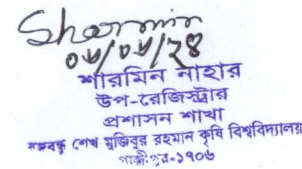 Sharmin
০৮/০৮/২৪
শারমিন নাহার
উপ-রেজিস্ট্রার
প্রশাসন শাখা
বঙ্গবন্ধু শেখ মুজিবুর রহমান কৃষি বিশ্ববিদ্যালয়
গাজীপুর-১৭০৬